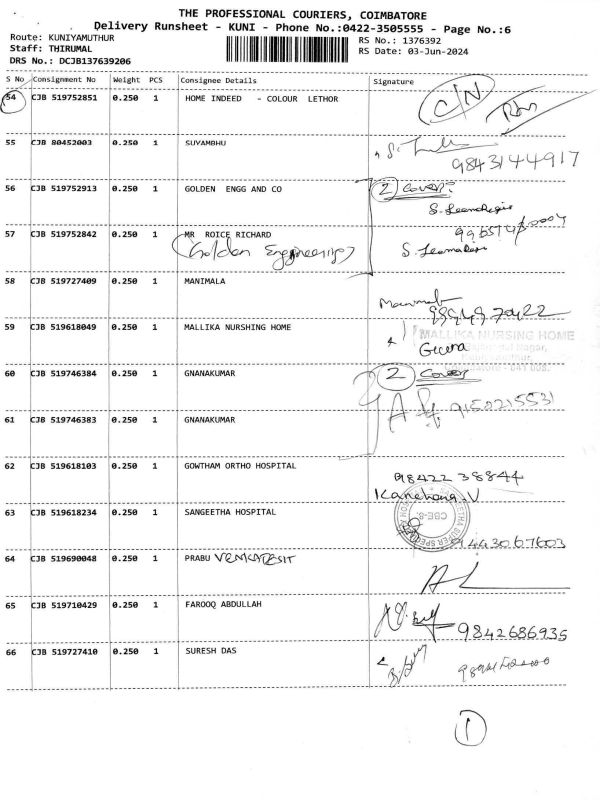 THE PROFESSIONAL COURIERS, COIMBATORE
Delivery Runsheet - KUNI - Phone No.:0422-3505555 - Page No.:6
Route: KUNIYAMUTHUR
RS No.: 1376392
Staff: THIRUMAL
RS Date: 03-Jun-2024
DRS No.: DCJB137639206
S No Consignment No Weight PCS Consignee Details Signature
54 CJB 519752851 0.250 1 HOME INDEED - COLOUR LETHOR C/N
55 CJB 80452003 0.250 1 SUYAMBHU
9843144917
56 CJB 519752913 0.250 1 GOLDEN ENGG AND CO 2 Cover
57 CJB 519752842 0.250 1 MR ROICE RICHARD
(Golden Enggineering)
58 CJB 519727409 0.250 1 MANIMALA
59 CJB 519618049 0.250 1 MALLIKA NURSHING HOME
MALLIKA NURSING HOME
Geera
60 CJB 519746384 0.250 1 GNANAKUMAR 2 Cover
9150215531
61 CJB 519746383 0.250 1 GNANAKUMAR
62 CJB 519618103 0.250 1 GOWTHAM ORTHO HOSPITAL
98422 38844
63 CJB 519618234 0.250 1 SANGEETHA HOSPITAL
CBE-8
9443067603
64 CJB 519690048 0.250 1 PRABU
65 CJB 519710429 0.250 1 FAROOQ ABDULLAH
9842686935
66 CJB 519727410 0.250 1 SURESH DAS
1